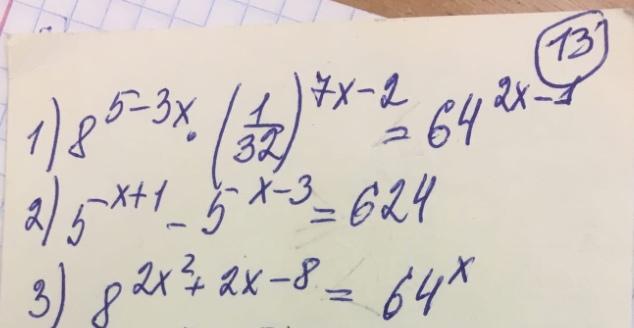 13
1) 8^{5-3x} · (1/32)^{7x-2} = 64^{2x-1}
2) 5^{x+1} - 5^{x-3} = 624
3) 8^{2x²+2x-8} = 64^x